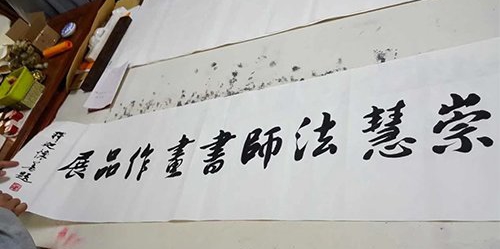 崇慧法師書畫作品展